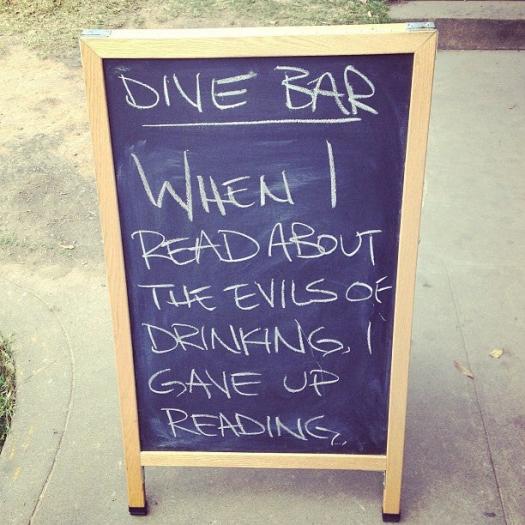 DIVE BAR
WHEN I
READ ABOUT
THE EVILS OF
DRINKING, I
GAVE UP
READING.